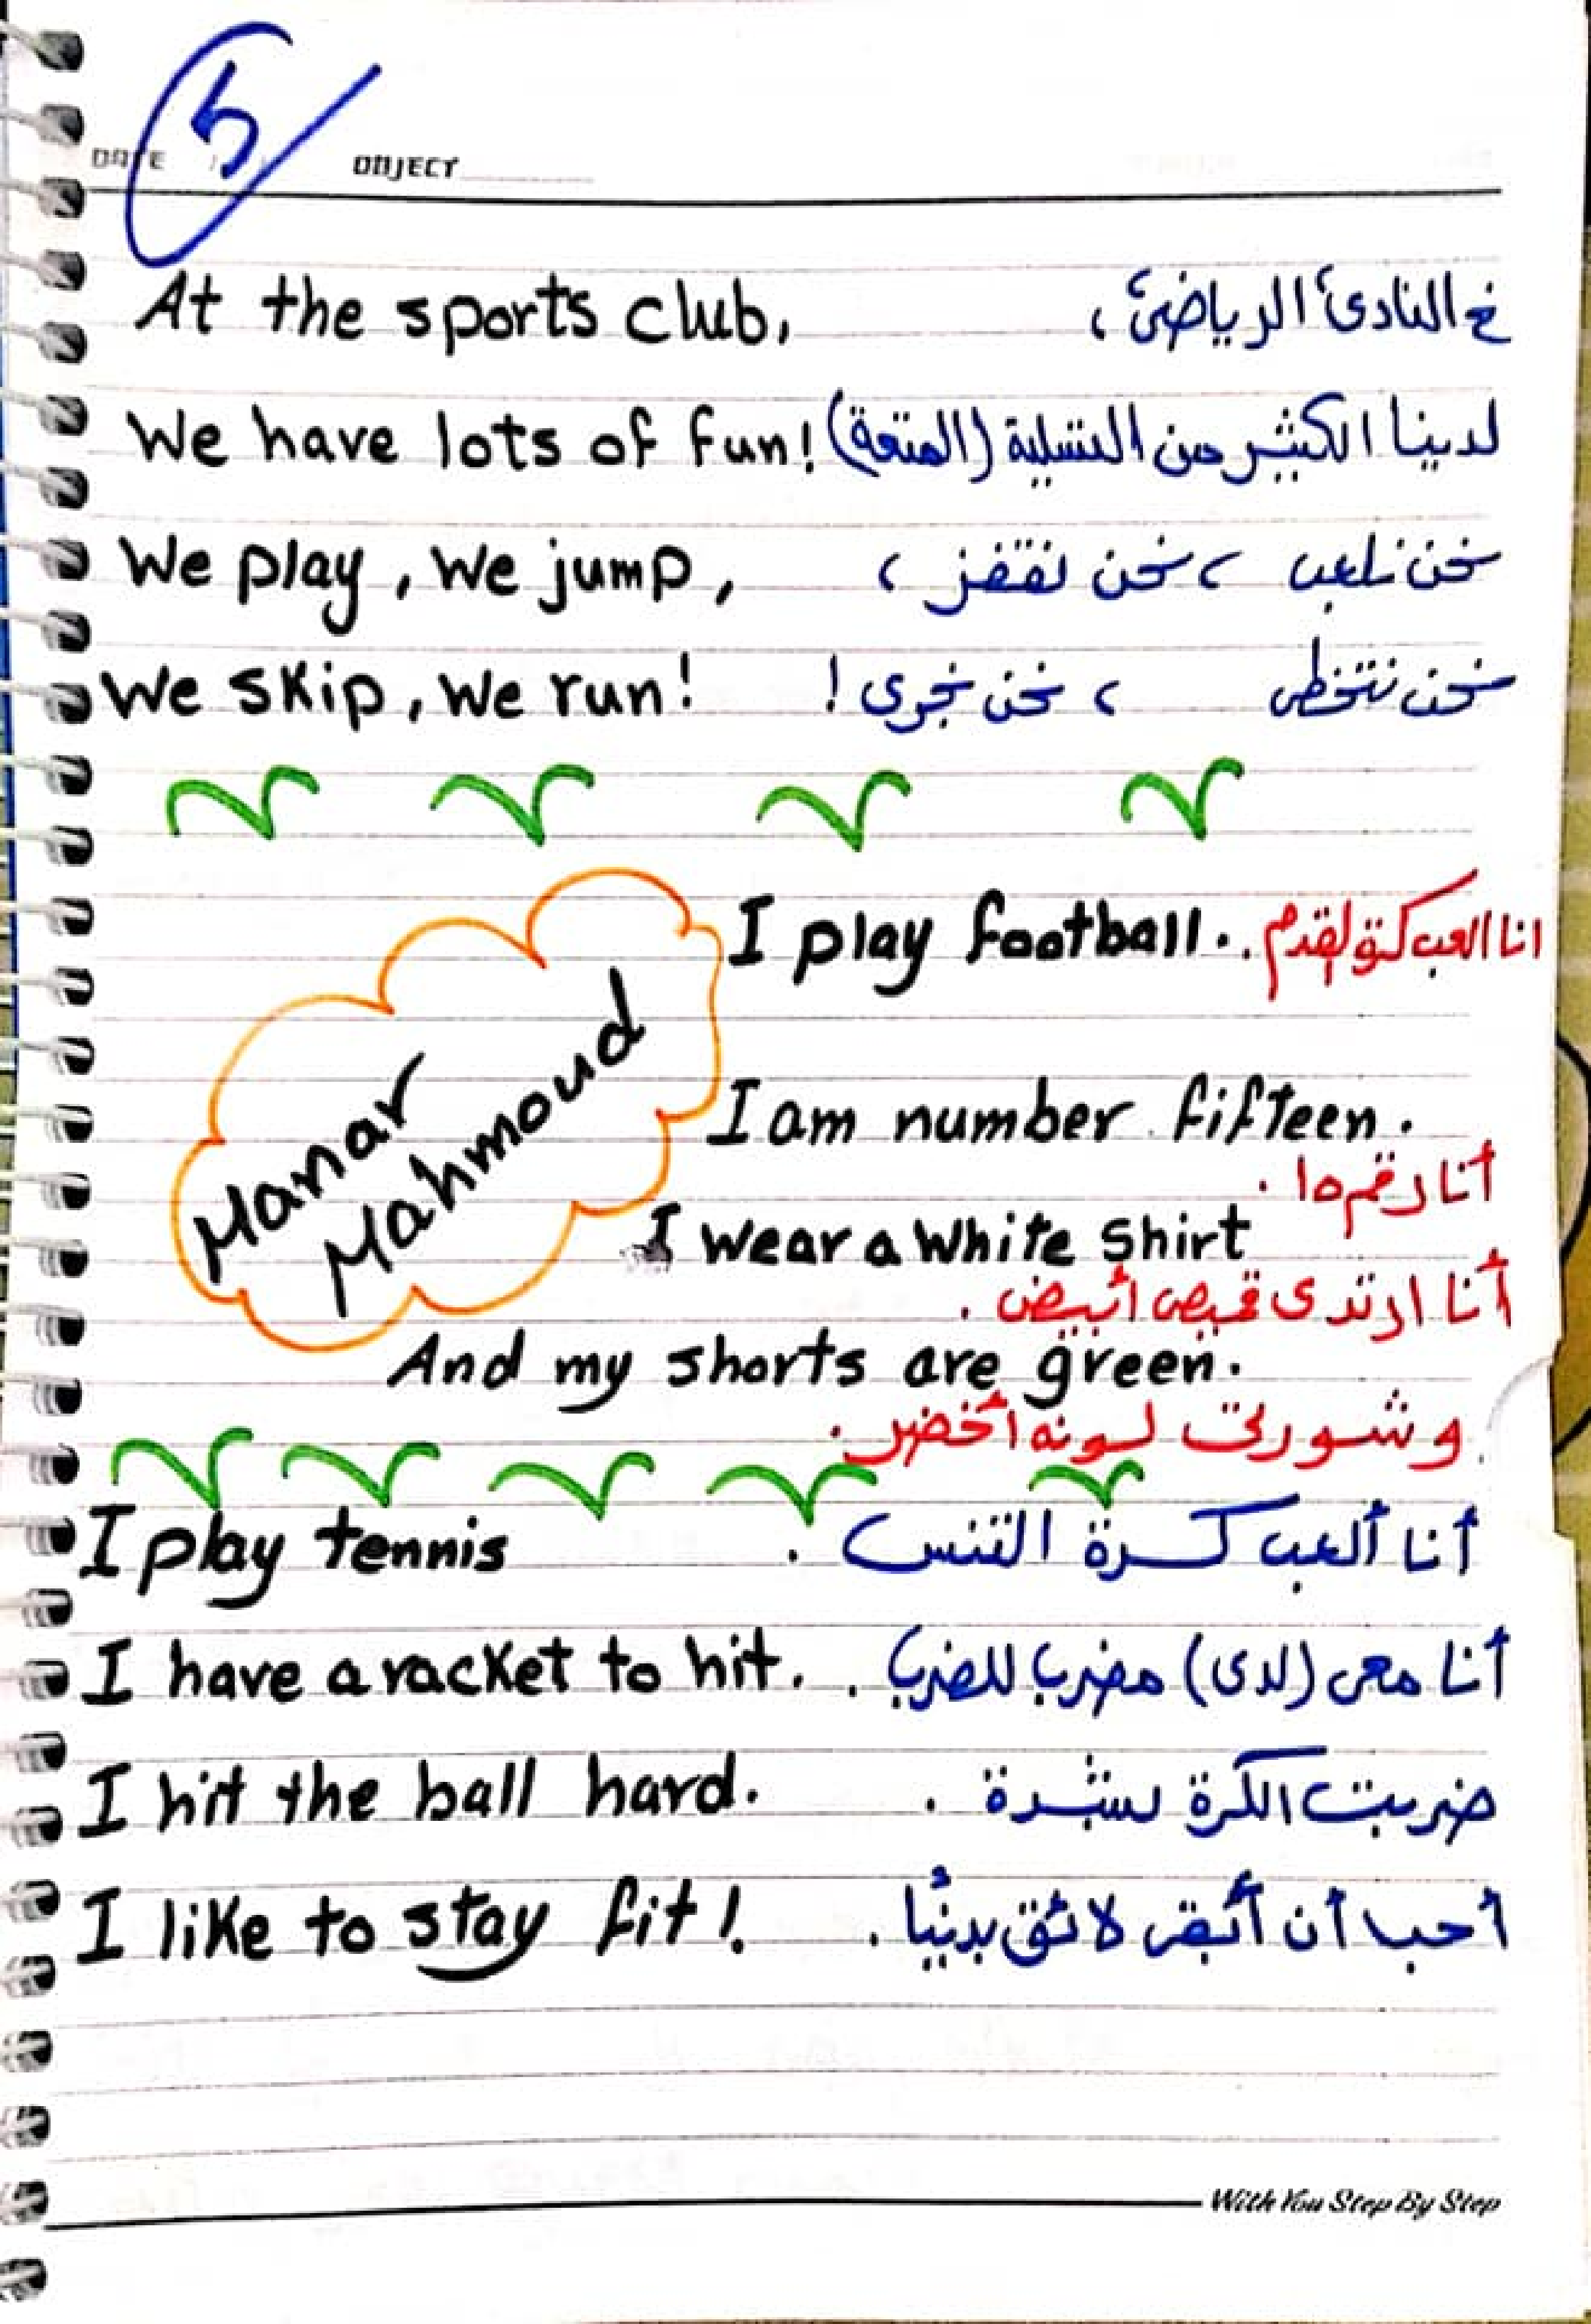 5
DATE / OBJECT
At the sports club, في النادئ الرياضئ ،
We have lots of fun! لدينا الكثير من التسلية (المتعة)
We play, We jump, نحن نلعب ، نحن نقفز ،
We skip, We run! نحن نتخطى ، نحن نجرى !
I play football. انا العب كرة القدم .
Manar
Mahmoud
I am number fifteen.
أنا رقم ١٥ .
I wear a white shirt
أنا ارتدى قميص أبيض .
And my shorts are green.
و شورتى لونه أخضر .
I play tennis أنا ألعب كرة التنس .
I have a racket to hit. أنا معى (لدى) مضرب للضرب .
I hit the ball hard. ضربت الكرة بشدة .
I like to stay fit! أحب أن أبقى لائق بدنيًا .
With You Step By Step